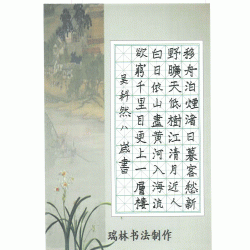 移舟泊煙渚日暮客愁新
野曠天低樹江清月近人
白日依山盡黃河入海流
欲窮千里目更上一層樓
吳然八歲書
瑞林书法制作